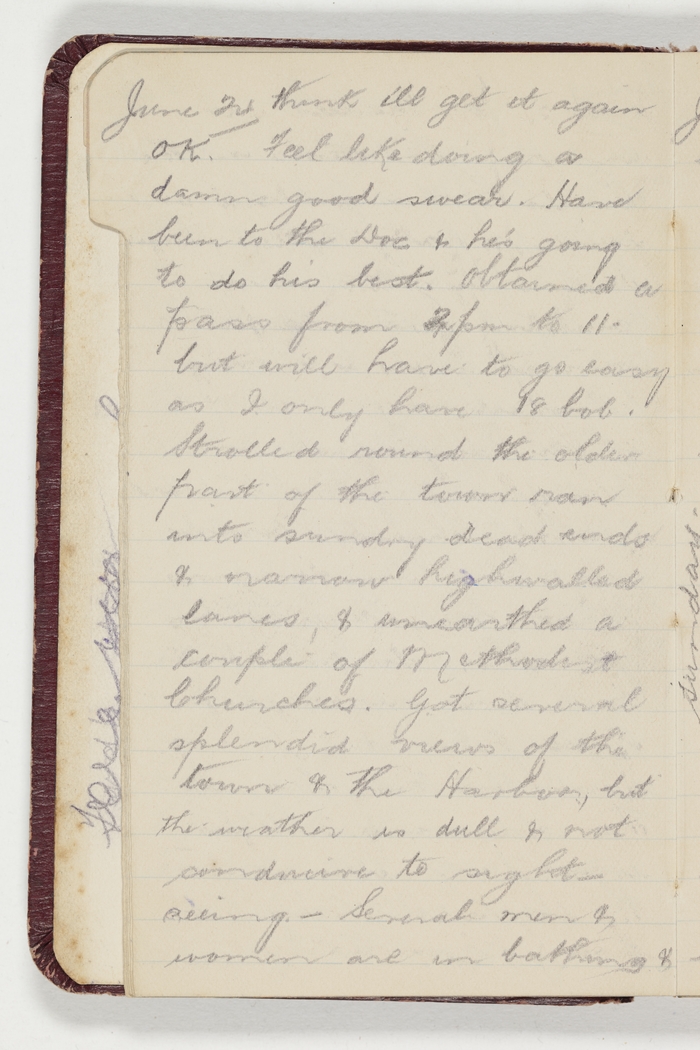 June 24 think ill get it again
OK. Feel like doing a
damn good swear. Have
been to the Doc & he's going
to do his best. Obtained a
pass from 2pm to 11.
but will have to go easy
as I only have 18 bob.
Strolled round the older
part of the town ran
into sundry dead ends
& narrow highwalled
lanes, & unearthed a
couple of Methodist
Churches. Got several
splendid views of the
town & the Harbor, but
the weather is dull & not
conducive to sight-
seeing - Several men &
women are in bathing &